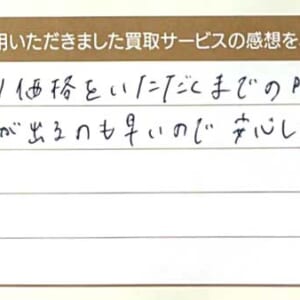 用いただきました買取サービスの感想を
価格をいただくまでの
が出るのも早いので安心し